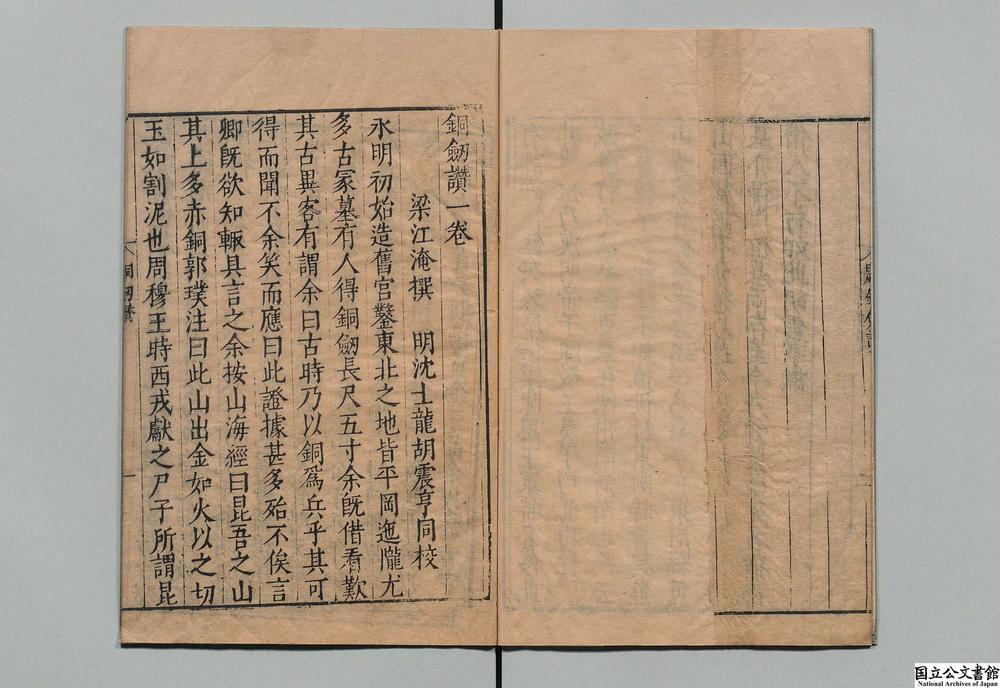 銅劒讚一卷
梁江淹撰　明沈士龍胡震亨同校
永明初始造舊宮鑿東北之地皆平岡迤隴尤
多古冢墓有人得銅劒長尺五寸余旣借看歎
其古異客有謂余曰古時乃以銅爲兵乎其可
得而聞不余笑而應曰此證據甚多殆不俟言
卿旣欲知輙具言之余按山海經曰昆吾之山
其上多赤銅郭璞注曰此山出金如火以之切
玉如割泥也周穆王時西戎獻之尸子所謂昆
銅劒讚
一
国立公文書館
National Archives of Japan